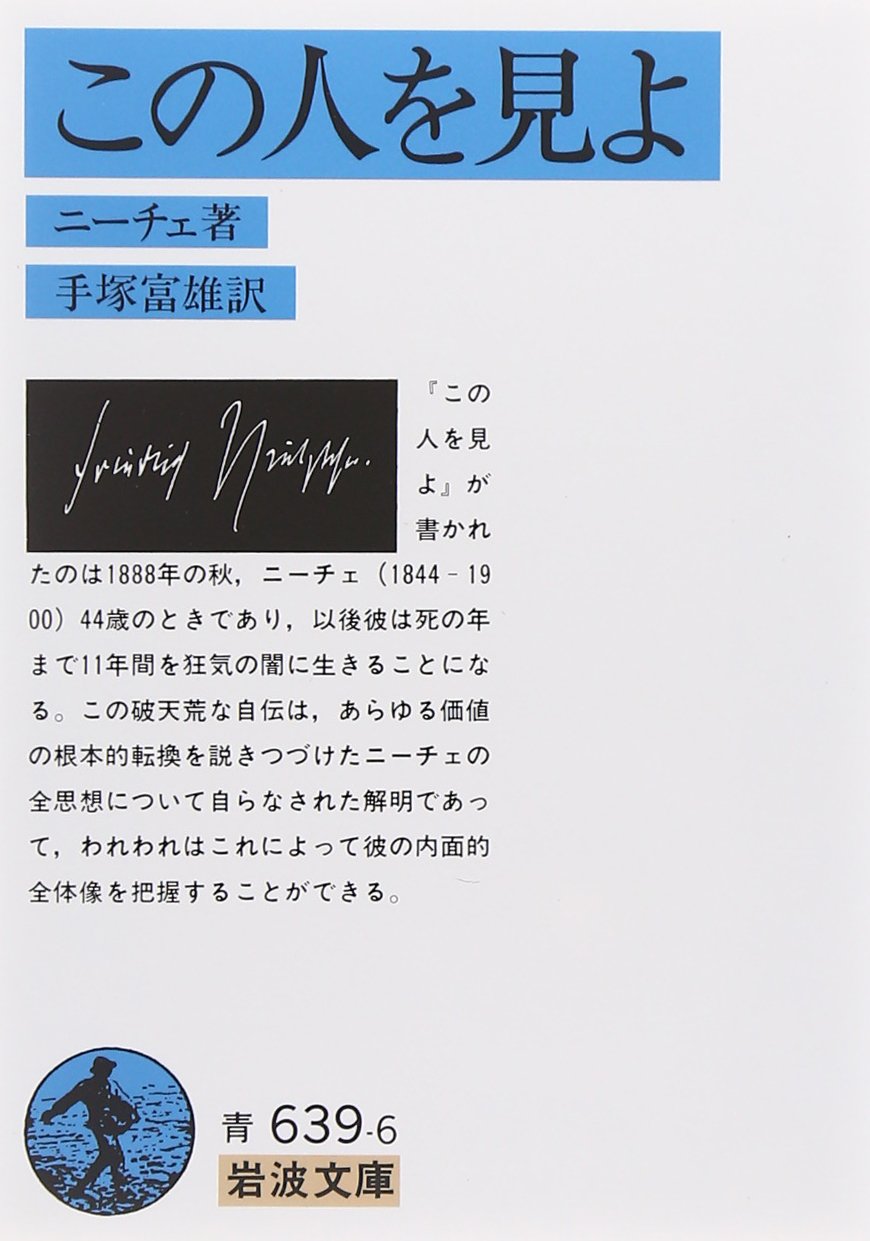 この人を見よ
ニーチェ著
手塚富雄訳
Friedrich Nietzsche.
『この
人を見
よ』が
書かれ
たのは1888年の秋，ニーチェ（1844‐19
00）44歳のときであり，以後彼は死の年
まで11年間を狂気の闇に生きることにな
る。この破天荒な自伝は，あらゆる価値
の根本的転換を説きつづけたニーチェの
全思想について自らなされた解明であっ
て，われわれはこれによって彼の内面的
全体像を把握することができる。
青 639-6
岩波文庫